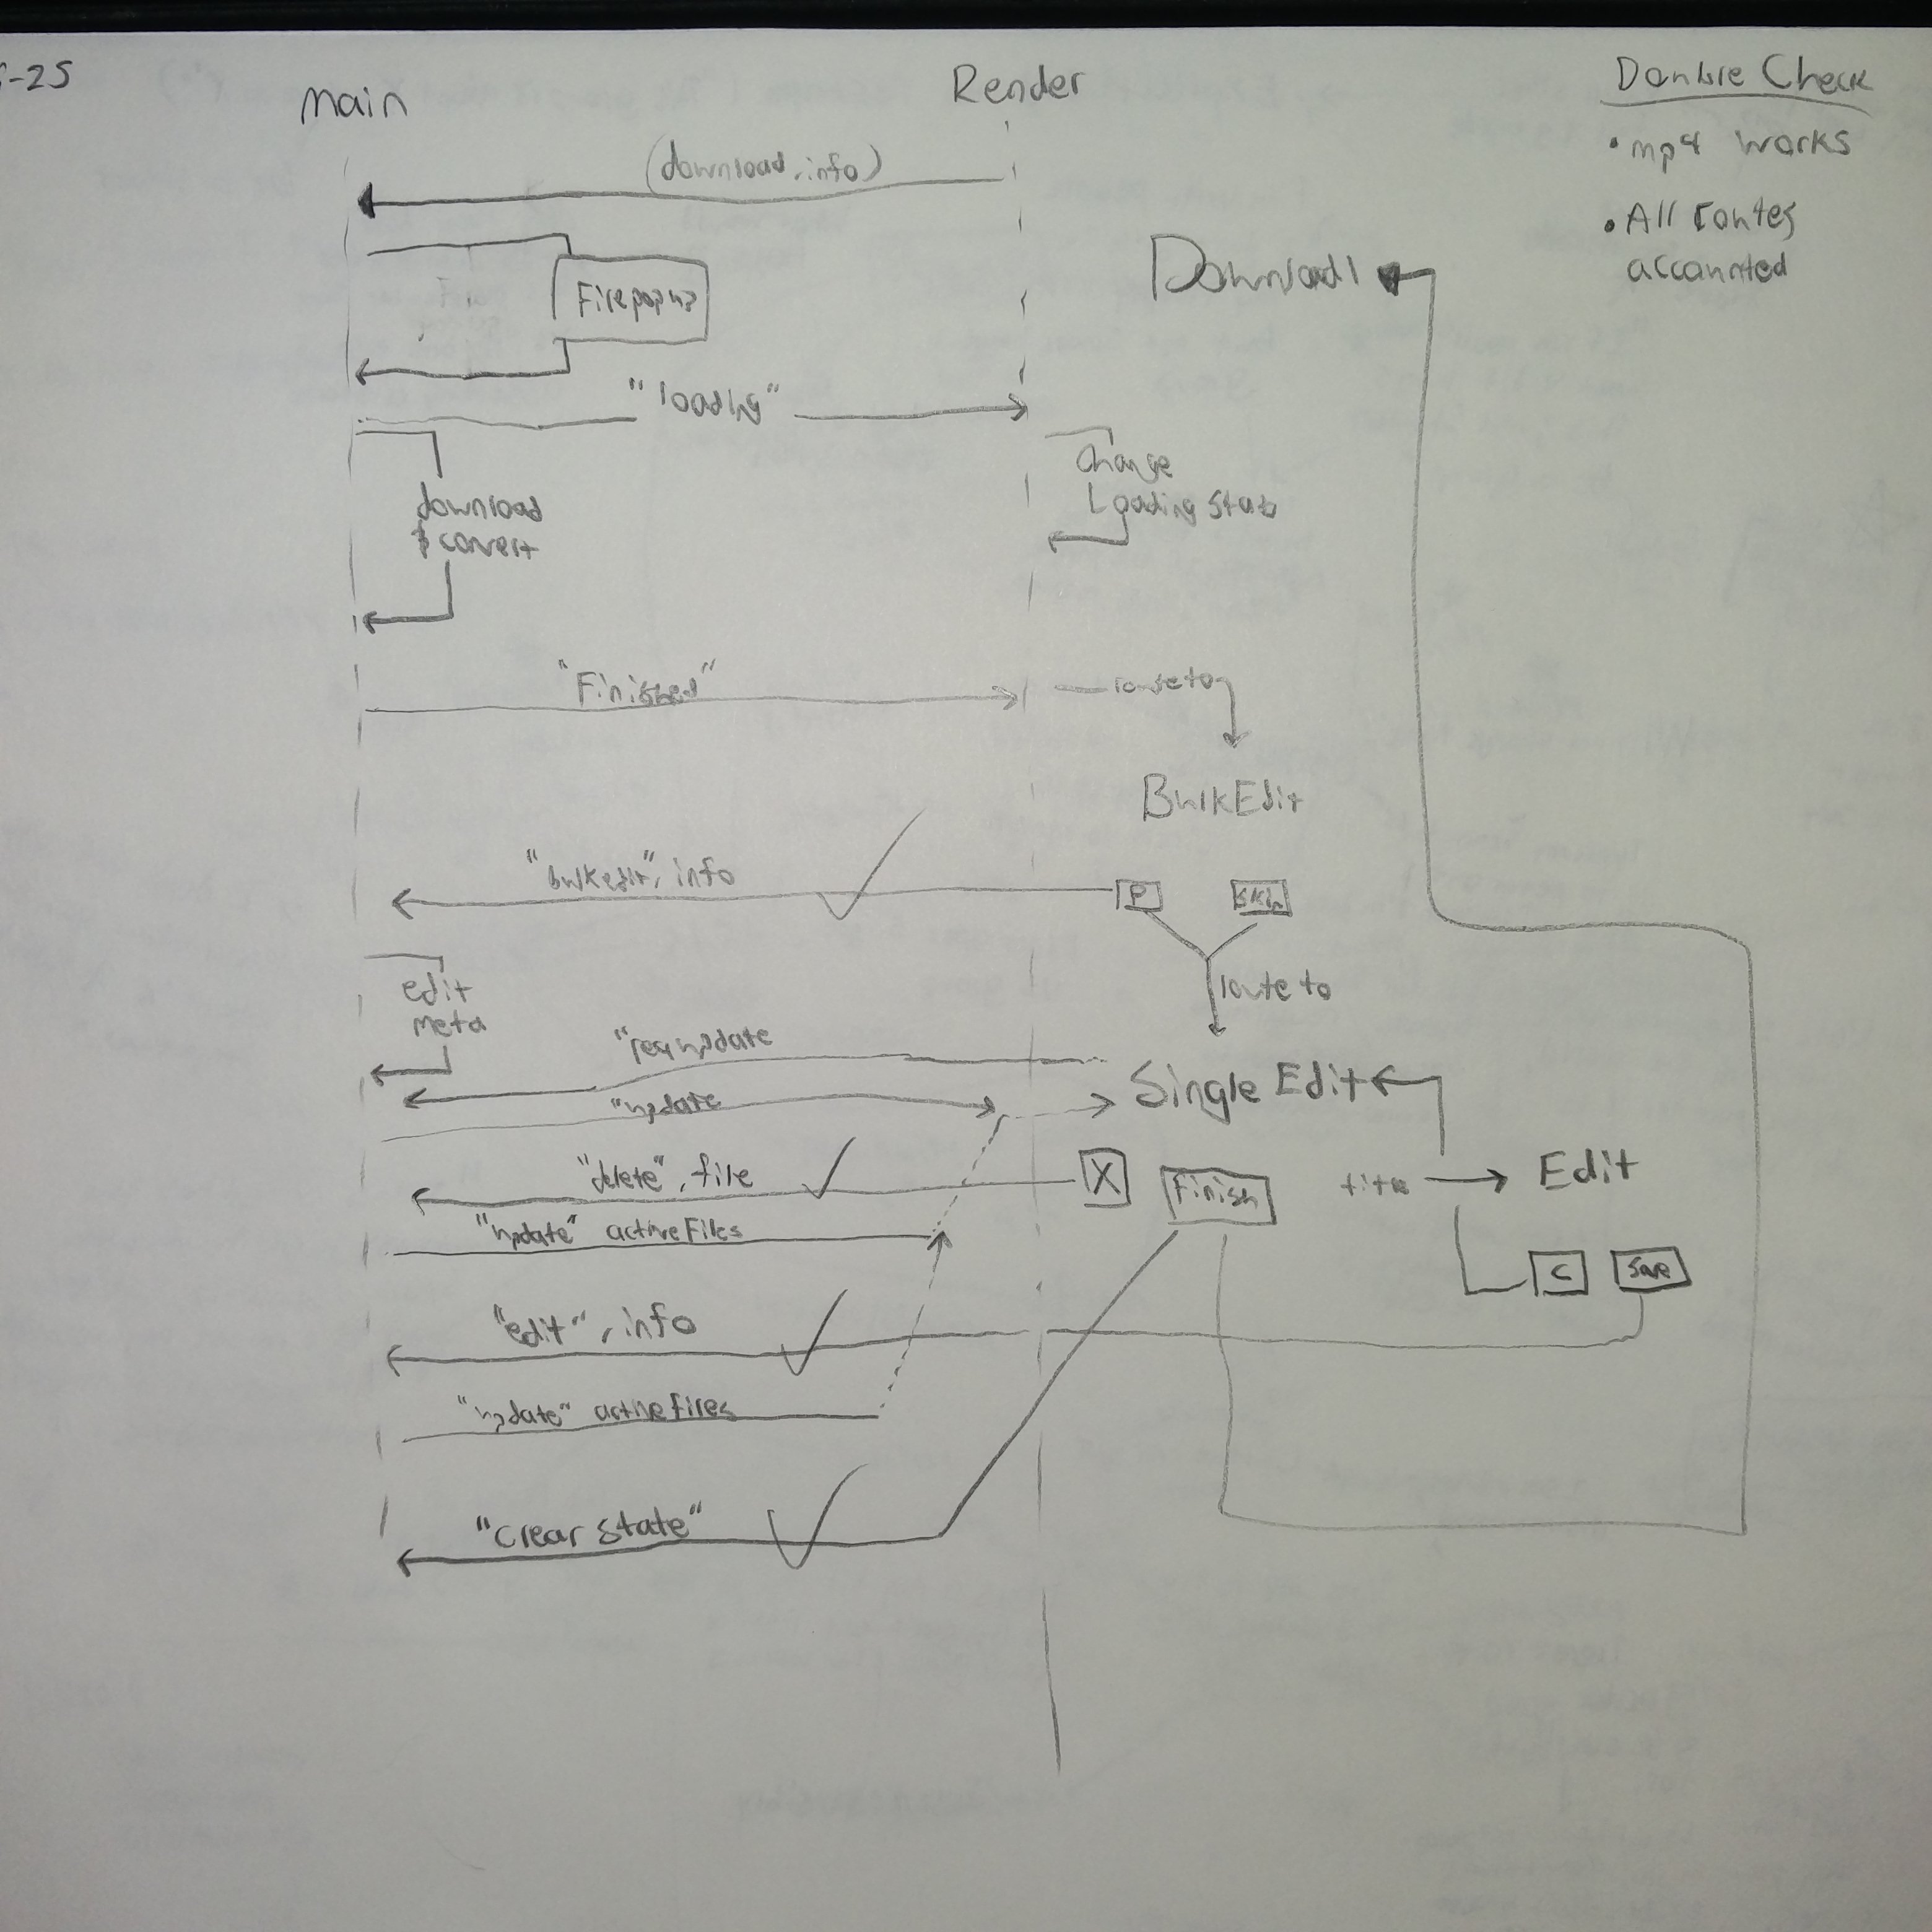 -25
Main
Render
Double Check
• mp4 works
• All routes
accounted
(download, info)
Download
File popup
"loading"
Change
Loading State
download
& convert
"Finished"
route to
BulkEdit
"bulkedit", info
P
Skip
route to
edit
meta
"req update
Single Edit
"update
"delete", file
X
Finish
title
Edit
"update" activeFiles
C
Save
"edit", info
"update" activeFiles
"clear state"